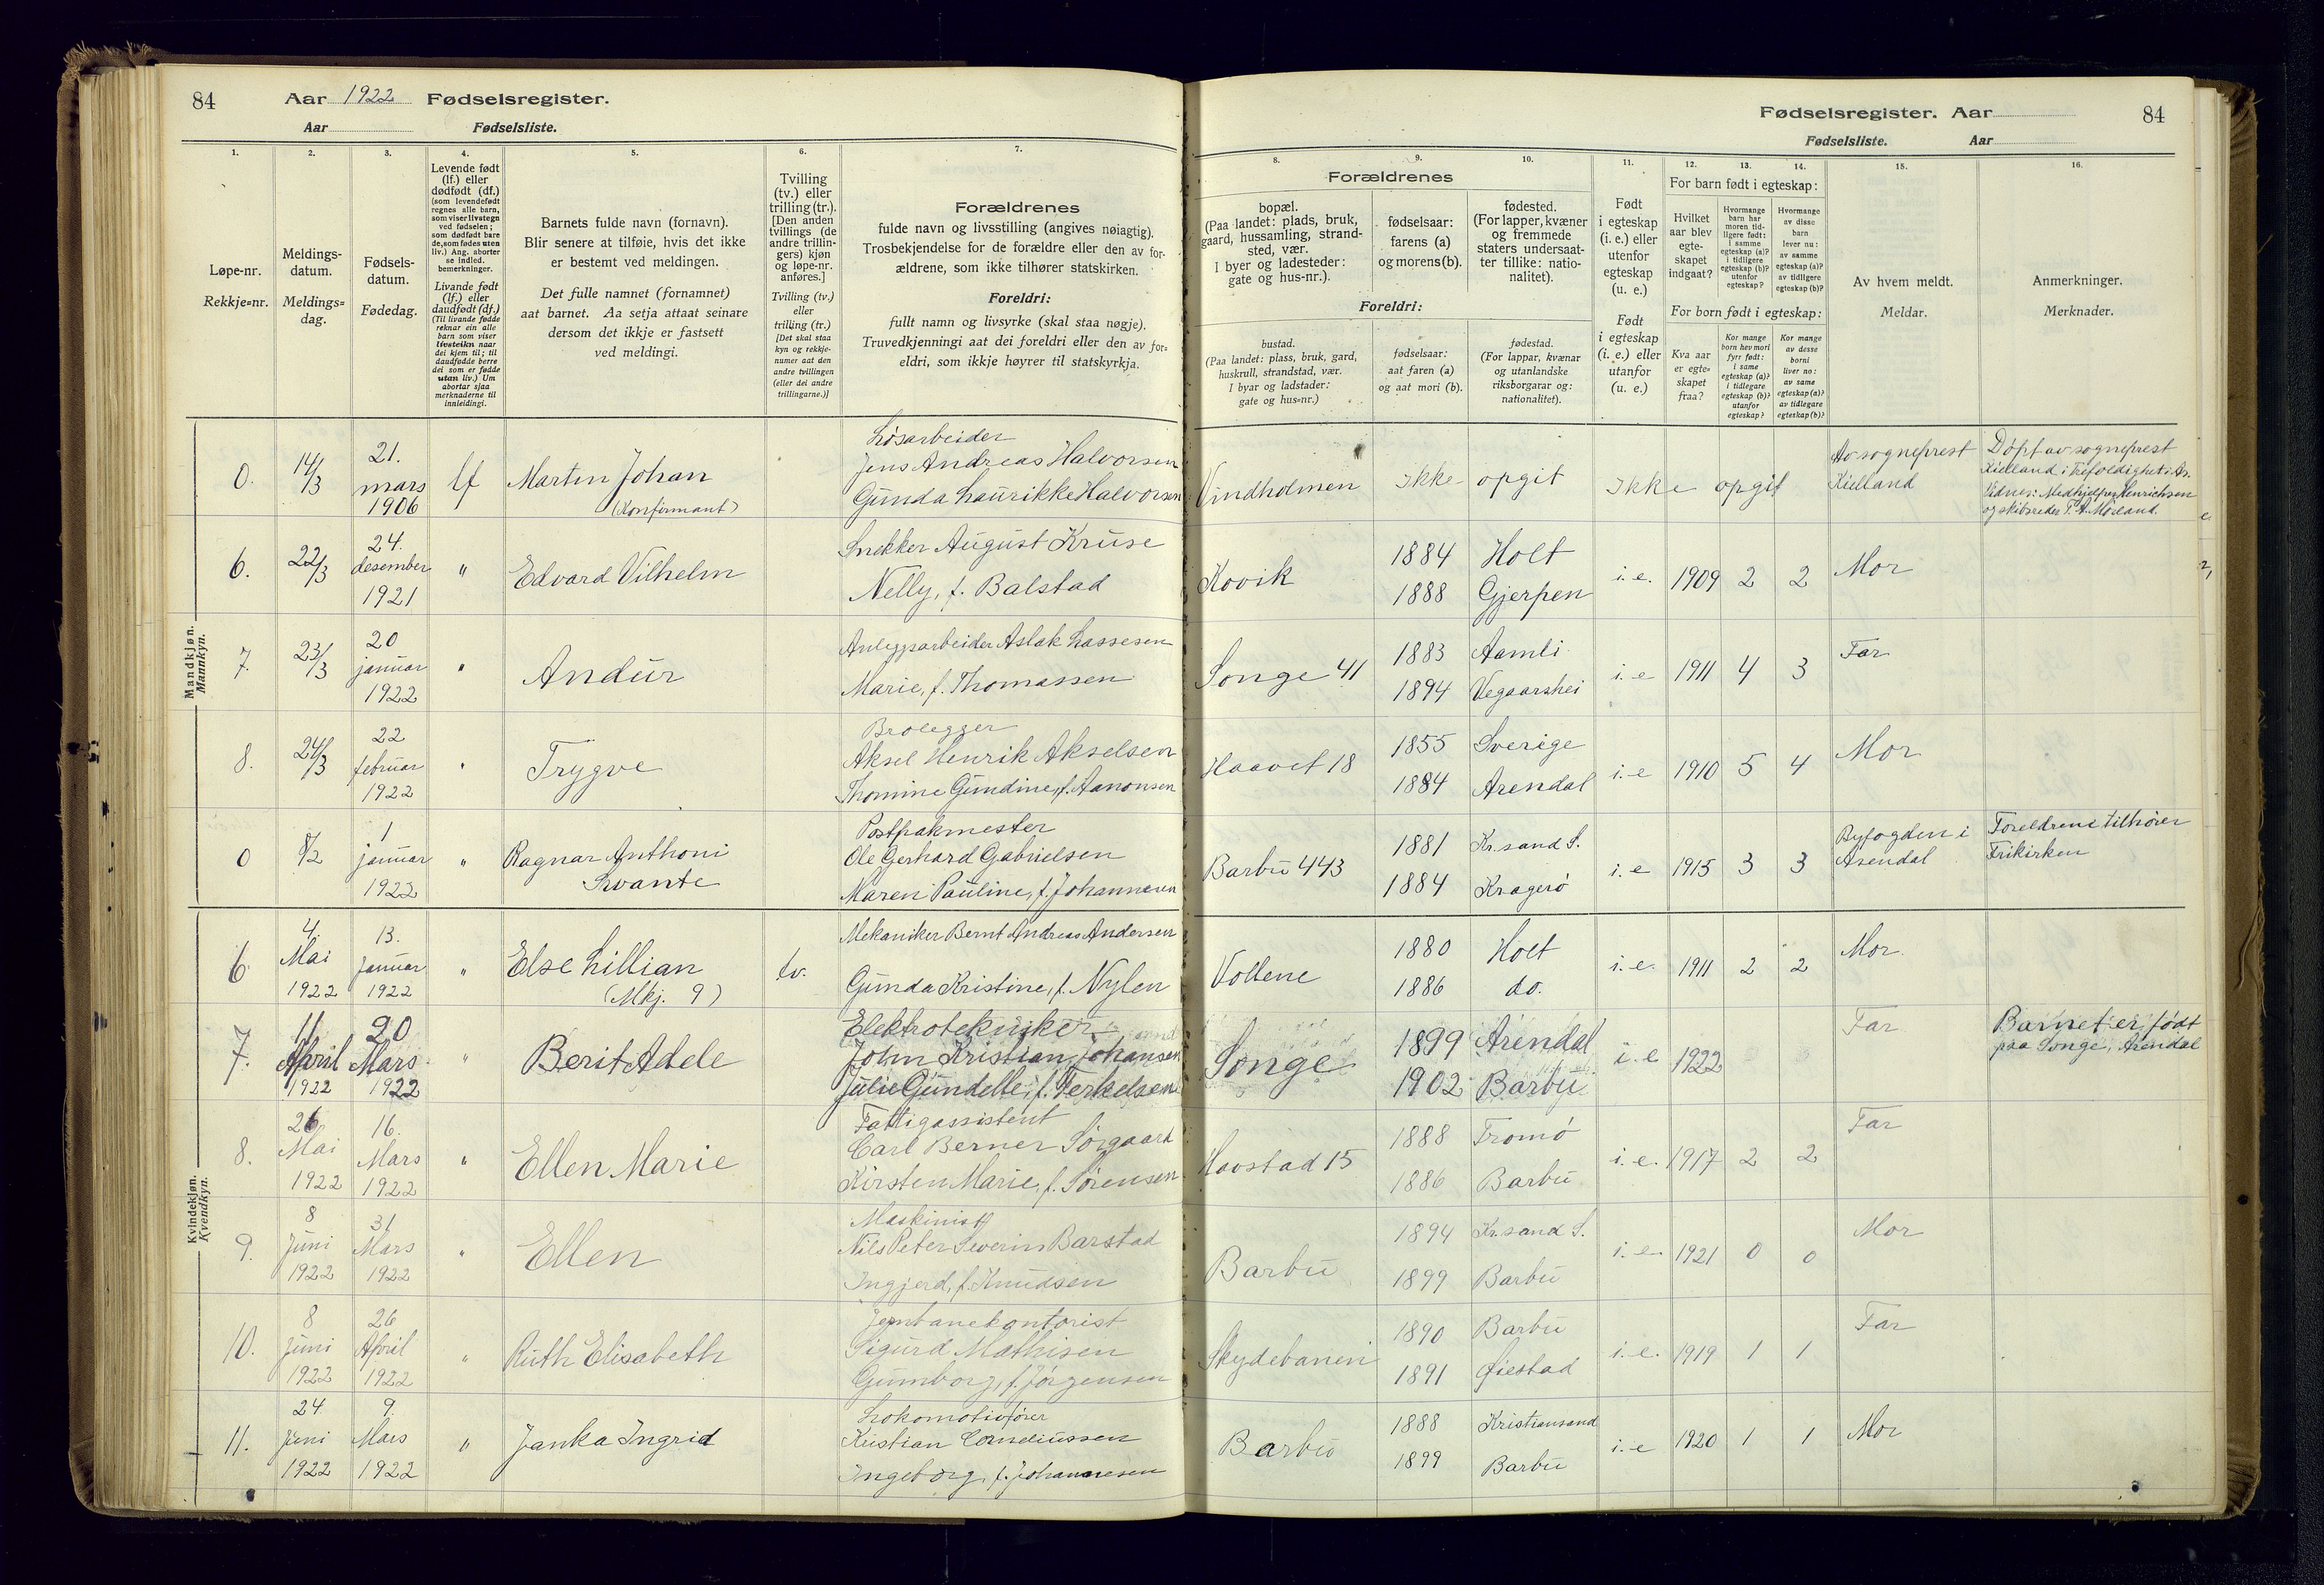 84 Aar 1922 Fødselsregister.
Aar Fødselsliste.
1. 2. 3. 4. 5. 6. 7.
Løpe-nr.
Rekkje=nr.
Meldings-
datum.
Meldings=
dag.
Fødsels-
datum.
Fødedag.
Levende født
(lf.) eller
dødfødt (df.)
(som levendefødt
regnes alle barn,
som viser livstegn
ved fødselen;
som dødfødt bare
de, som fødes uten
liv.) Ang. aborter
se indled.
bemerkninger.
Livande født
(lf.) eller
daudfødt (df.)
(Til livande fødde
reknar ein alle
barn som viser
livsteikn naar
dei kjem til; til
daudfødde berre
dei som er fødde
utan liv.) Um
abortar sjaa
merknaderne til
innleidingi.
Barnets fulde navn (fornavn).
Blir senere at tilføie, hvis det ikke
er bestemt ved meldingen.
Det fulle namnet (fornamnet)
aat barnet. Aa setja attaat seinare
dersom det ikkje er fastsett
ved meldingi.
Tvilling
(tv.) eller
trilling (tr.).
[Den anden
tvillings (de
andre trillin-
gers) kjøn
og løpe-nr.
anføres.]
Tvilling (tv.)
eller
trilling (tr.)
[Det skal staa
kyn og rekkje-
numer aat den
andre tvillingen
(eller dei andre
trillingarne.)]
Forældrenes
fulde navn og livsstilling (angives nøiagtig).
Trosbekjendelse for de forældre eller den av for-
ældrene, som ikke tilhører statskirken.
Foreldri:
fullt namn og livsyrke (skal staa nøgje).
Truvedkjenningi aat dei foreldri eller den av for=
eldri, som ikkje høyrer til statskyrkja.
Fødselsregister. Aar 84
Fødselsliste. Aar
8. 9. 10. 11. 12. 13. 14. 15. 16.
Forældrenes
bopæl.
(Paa landet: plads, bruk,
gaard, hussamling, strand-
sted, vær.
I byer og ladesteder:
gate og hus-nr.).
fødselsaar:
farens (a)
og morens (b).
fødested.
(For lapper, kvæner
og fremmede
staters undersaat-
ter tillike: natio-
nalitet).
Foreldri:
bustad.
(Paa landet: plass, bruk, gard,
huskrull, strandstad, vær.
I byar og ladstader:
gate og hus=nr.)
fødselsaar:
aat faren (a)
og aat mori (b).
fødestad.
(For lappar, kvænar
og utanlandske
riksborgarar og:
nationalitet).
Født
i egteskap
(i. e.) eller
utenfor
egteskap
(u. e.)
Født
i egteskap
(i. e.) eller
utanfor
(u. e.)
For barn født i egteskap:
Hvilket
aar blev
egte-
skapet
indgaat?
Hvormange
barn har
moren tid-
ligere født:
i samme
egteskap (a)?
i tidligere
egteskap (b)?
utenfor
egteskap?
Hvormange
av disse
barn
lever nu:
av samme
egteskap (a)?
av tidligere
egteskap (b)?
For born født i egteskap:
Kva aar
er egte=
skapet
fraa?
Kor mange
born hev mori
fyrr født:
i same
egteskap (a)?
i tidlegare
egteskap (b)?
utanfor
egteskap?
Kor mange
av desse
borni
liver no:
av same
egteskap (a)?
av tidlegare
egteskap (b)?
Av hvem meldt.
Meldar.
Anmerkninger.
Merknader.
Mandkjøn.
Mannkyn.
0. 14/3 21. mars 1906 lf Martin Johan (Konfirmant)
Løsarbeider
Jens Andreas Halvorsen
Gunda Laurikke Halvorsen
Vindholmen Ikke opgit Ikke opgit
Av sogneprest
Kielland
Døpt av sogneprest
Kielland i Trefoldighet: Ar.
Vidner: Medhjelper Henrichsen
og skibsreder T. A. Mosland.
6. 22/3 24. desember 1921 " Edvard Vilhelm
Snekker August Kruse
Nelly, f. Balstad
Kovik 1884 Holt
1888 Gjerpen
i. e. 1909 2 2 Mor
7. 23/3 20 januar 1922 " Andur
Anlegsarbeider Aslak Lassesen
Marie, f. Thomassen
Songe 41 1883 Aamli
1894 Vegaarshei
i. e 1911 4 3 Far
8. 24/3 22 februar 1922 " Trygve
Brolegger
Aksel Henrik Akselsen
Thomine Gundine, f. Aanonsen
Haavet 18 1855 Sverige
1884 Arendal
i. e 1910 5 4 Mor
0 8/2 1 januar 1922 " Ragnar Anthoni
Svante
Postpakmester
Ole Gerhard Gabrielsen
Maren Pauline, f. Johannesen
Barbu 443 1881 Kr.sand S.
1884 Kragerø
i. e 1915 3 3
Byfogden i
Arendal
Foreldrene tilhører
Frikirken
Kvindekjøn.
Kvendkyn.
6. 4. Mai 1922 13. Januar 1922 " Else Lillian
(Mkj. 9) tv.
Mekaniker Bernt Andreas Andersen
Gunda Kristine, f. Nylen
Vollene 1880 Holt
1886 do.
i. e. 1911 2 2 Mor
7. 11 April 1922 20 Mars 1922 " Berit Adele
Elektrotekniker
John Kristian Johansen
Julie Gundelle, f. Terkelsen
Songe 1899 Arendal
1902 Barbu
i. e 1922 Far
Barnet er født
paa Songe, Arendal
8. 26 Mai 1922 16. Mars 1922 " Ellen Marie
Fattigassistent
Carl Berner Sørgaard
Kirsten Marie, f. Sørensen
Havstad 15 1888 Tromø
1886 Barbu
i. e. 1917 2 2 Far
9. 8 Juni 1922 31 Mars 1922 " Ellen
Maskinist
Nils Peter Severin Barstad
Ingjerd, f. Knudsen
Barbu 1894 Kr.sand S.
1899 Barbu
i. e. 1921 0 0 Mor
10. 8 Juni 1922 26 April 1922 " Ruth Elisabeth
Jernbanekontorist
Sigurd Mathisen
Gunborg, f. Jørgensen
Skydebanen 1890 Barbu
1891 Øiestad
i. e. 1919 1 1 Far
11. 24 Juni 1922 9. Mars 1922 " Janka Ingrid
Lokomotivfører
Kristian Corneliussen
Ingeborg, f. Johannesen
Barbu 1888 Kristiansand
1899 Barbu
i. e 1920 1 1 Mor